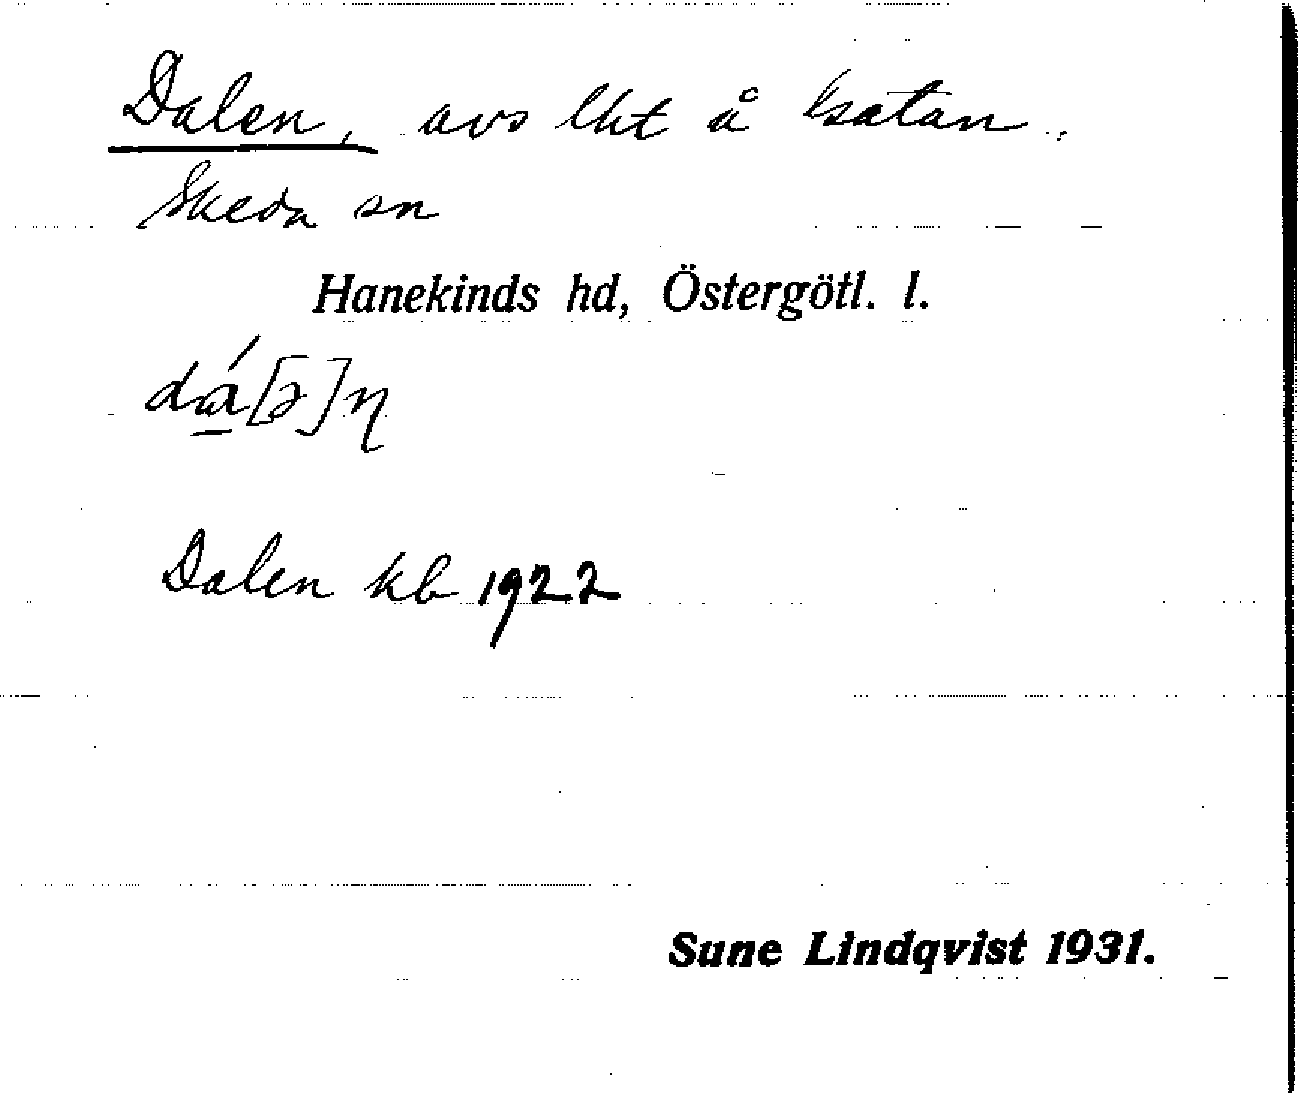 Dalen, avs lht å Isatan.
Skeda sn
Hanekinds hd, Östergötl. l.
dá̱[ə]n
Dalen kb 1922
Sune Lindqvist 1931.